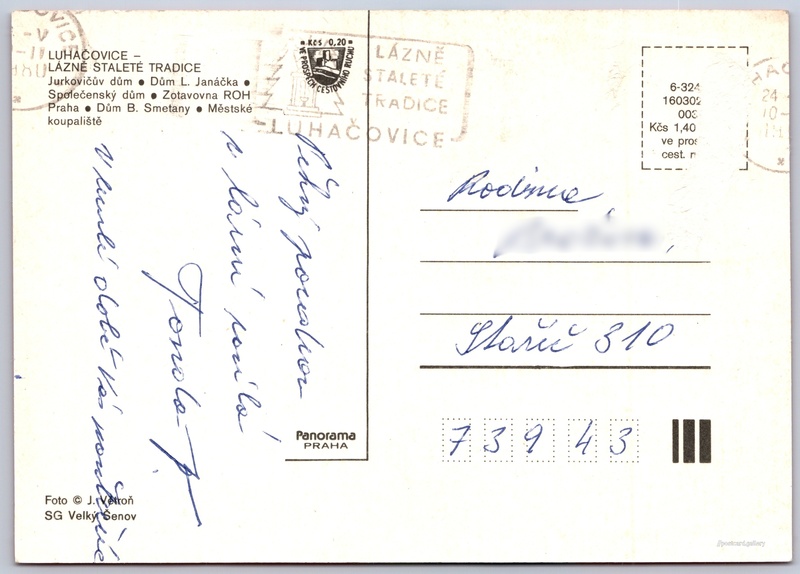 LUHAČOVICE –
LÁZNĚ STALETÉ TRADICE
Jurkovičův dům ● Dům L. Janáčka ●
Společenský dům ● Zotavovna ROH
Praha ● Dům B. Smetany ● Městské
koupaliště
Kčs 0,20
VE PROSPĚCH CESTOVNÍHO RUCHU
LÁZNĚ
STALETÉ
TRADICE
-LUHAČOVICE-
6-324
160302
003
Kčs 1,40
ve pros
cest. r
Pěkný pozdrav
z lázní posílá
Tonda
Rodina
Staříč 310
739 43
Panorama
PRAHA
Foto © J. Větroň
SG Velký Šenov
//postcard.gallery